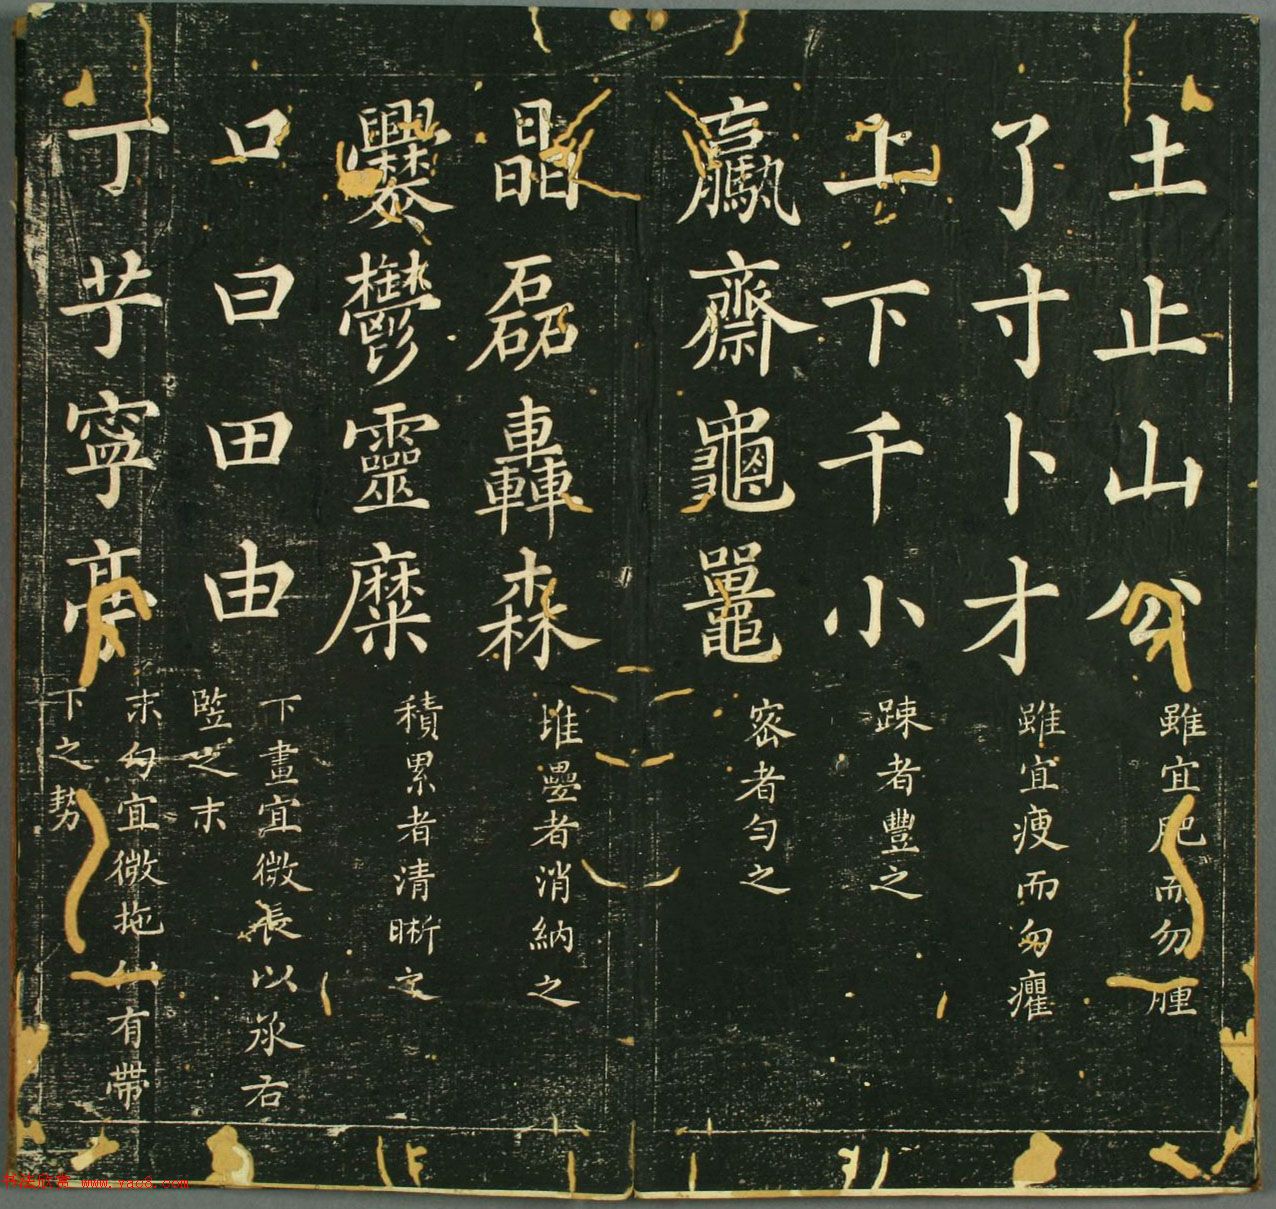 土止山公 雖宜肥而勿腫
了寸卜才 雖宜瘦而勿癯
上下千小 踈者豐之
羸齋龜鼉 密者勻之
晶磊轟森 堆疊者消納之
爨鬱靈糜 積累者清晰之
口曰田由 下畫宜微長以承右
豎之末
丁芓寧亭 末勾宜微拖似有帶
下之勢
书法欣赏 www.yac8.com